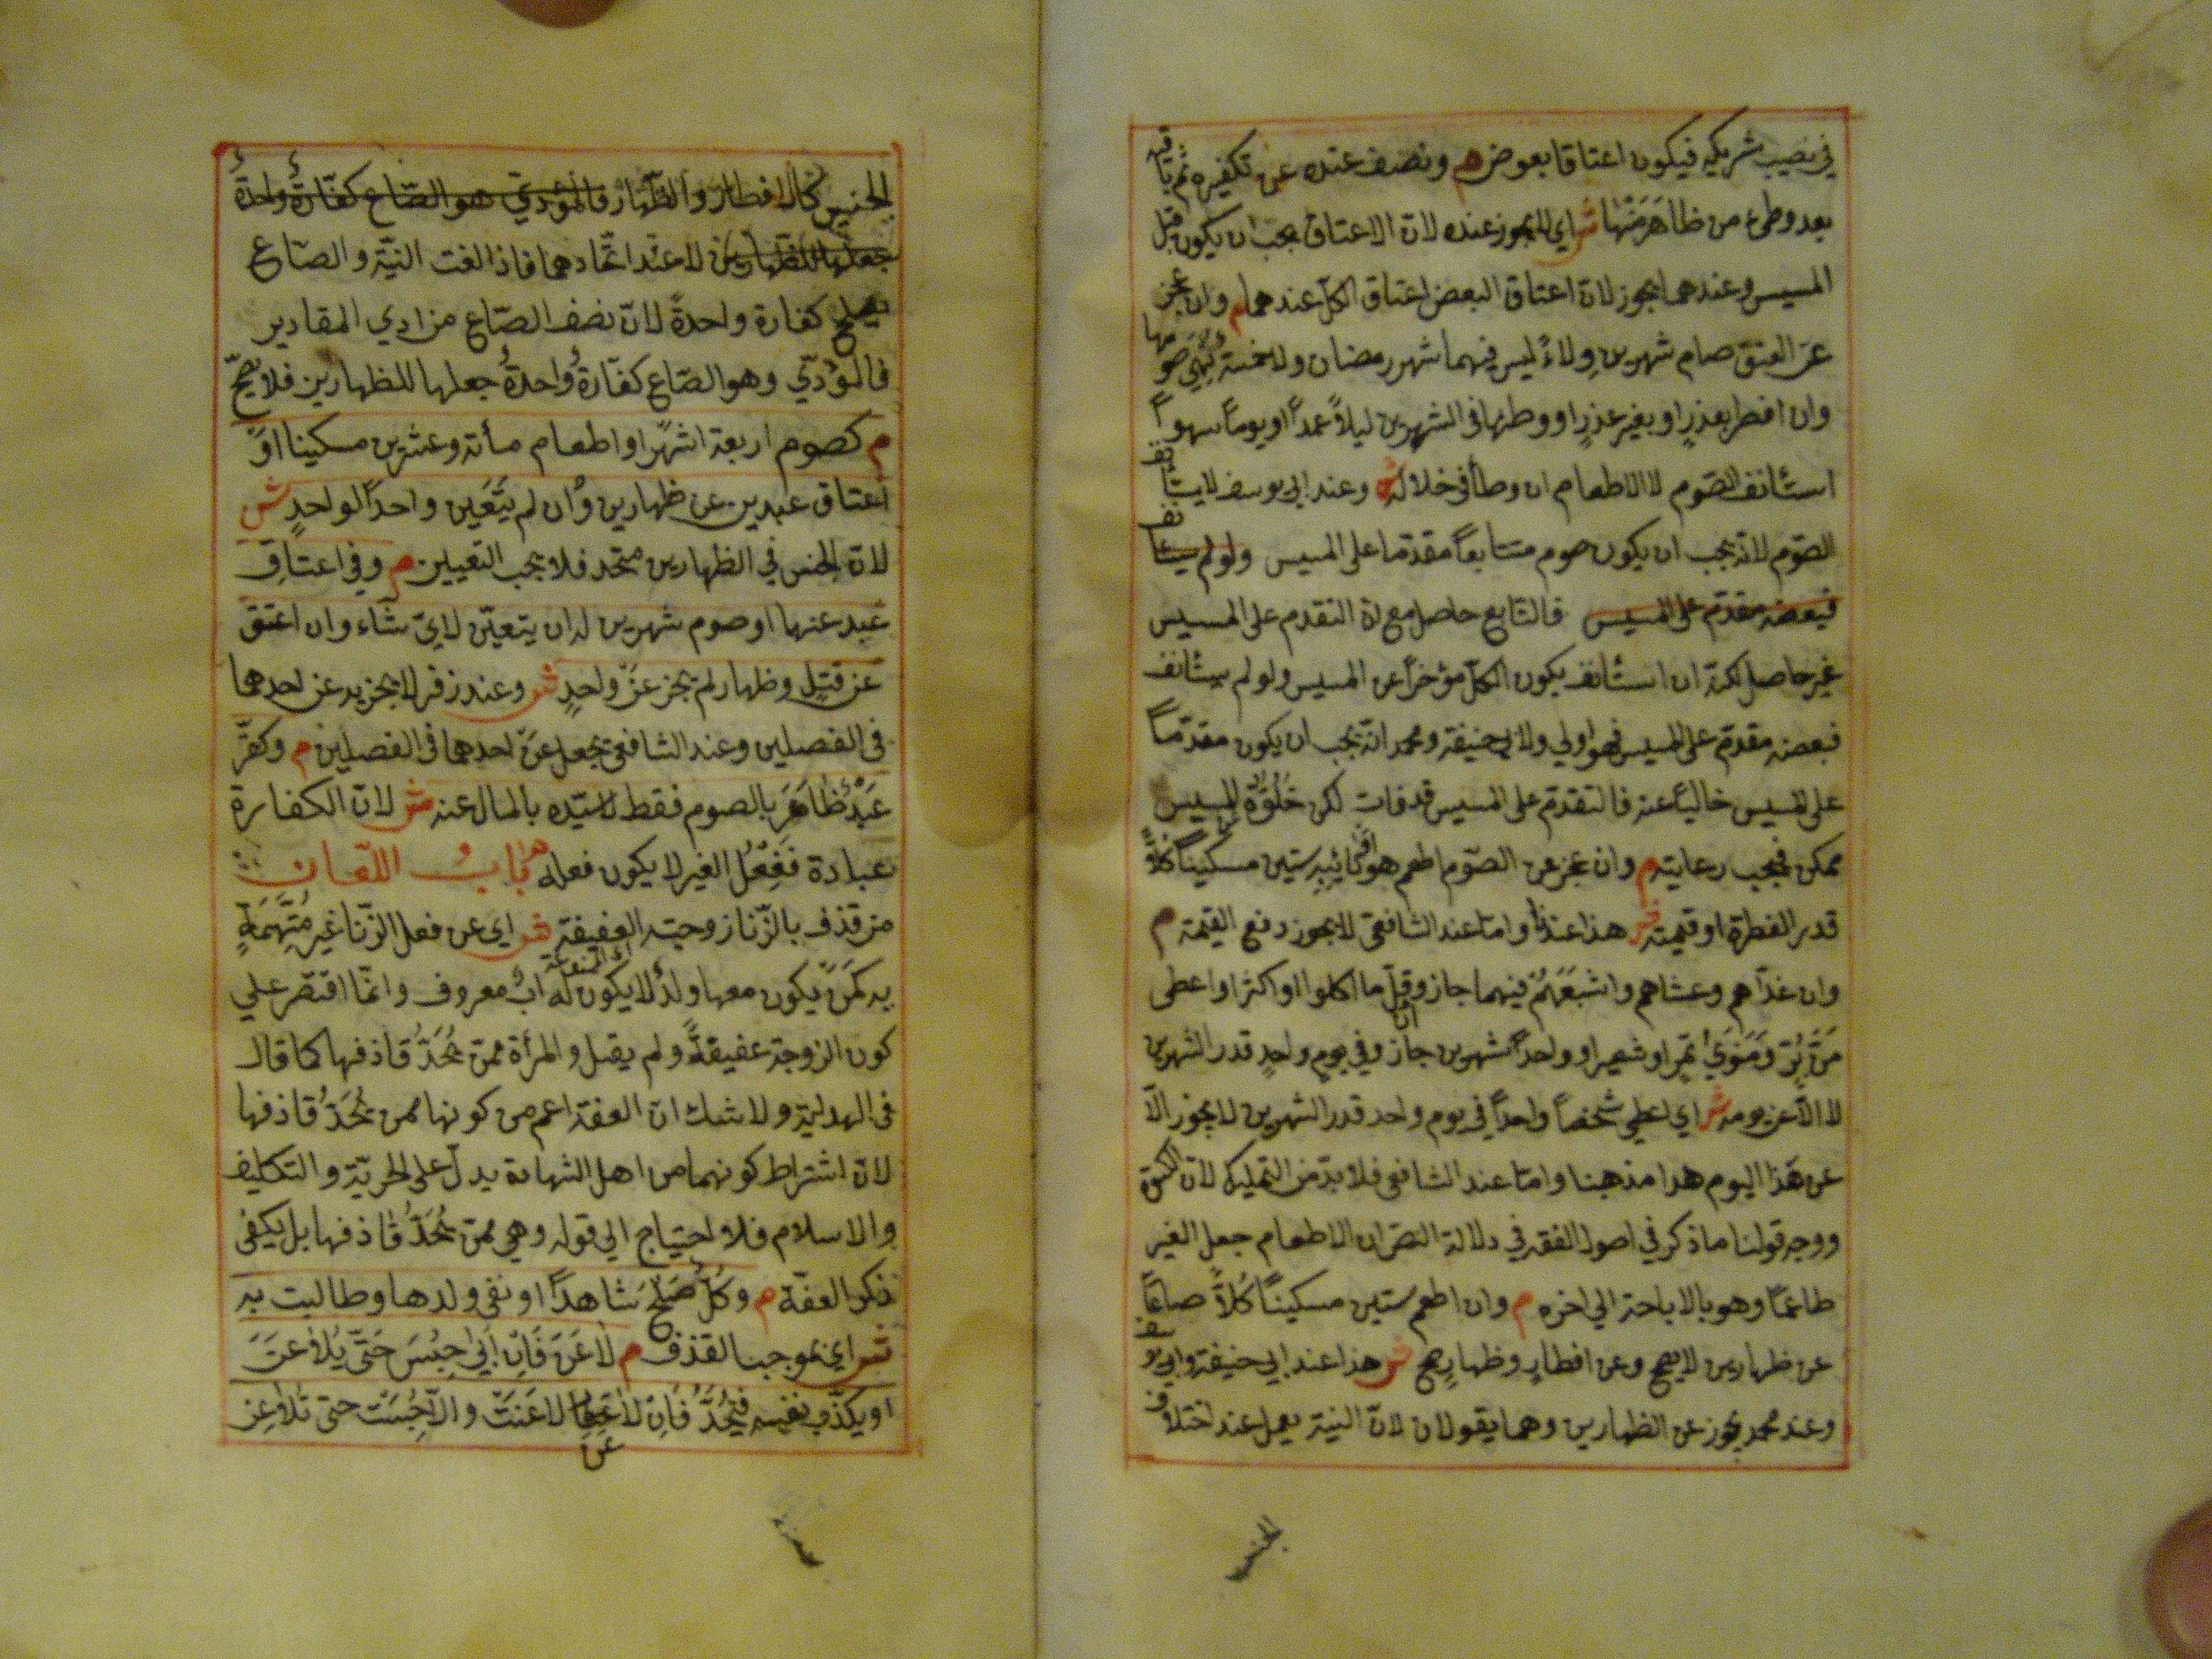 في نصيب شريكه فيكون اعتاقا بعوض م ونصف عبده عن تكفيره ثم باقيه
بعد وطئ من ظاهر منها ش اي لا يجوز عنده لان الاعتاق يجب ان يكون قبل
المسيس وعندهما يجوز لان اعتاق البعض اعتاق الكل عندهما م وان عجز
عن العتق صام شهرين ولاءً ليس فيهما شهر رمضان ولا خمسة نهي صومها
وان افطر بعذرٍ او بغير عذرٍ او وطئها في الشهرين ليلاً عمداً او يوماً سهواً
استأنف الصّوم لا الاطعام ان وطأ في خلاله ش وعند ابي يوسف لا يستأنف
الصّوم لانّه يجب ان يكون صوم متتابعاً مقدّما على المسيس ولو لم يستأنف
فبعضه مقدّم على المسيس فالتتابع حاصل مع ان التقدم على المسيس
غير حاصل لكنّه ان استأنف يكون الكلّ مؤخراً عن المسيس ولو لم يستأنف
فبعضه مقدّم على المسيس فهو اولي ولابي حنيفة ومحمد انّه يجب ان يكون مقدّماً
على المسيس خالياً عنه فالتقدّم على المسيس قد فات لكن خلوّه عن المسيس
ممكن فيجب رعايته م وان عجز عن الصّوم اطعم هو او نائبه ستين مسكيناً كلاً
قدر الفطرة او قيمته ش هذا عندنا وامّا عند الشافعيّ لا يجوز دفع القيمة م
وان غدّاهم وعشاهم واشبعهم فيهما جاز وان قلّ ما اكلوا او اكثر او اعطى
منّ برّ ومنوي تمر او شعير او واحداً شهرين جاز وفي يومٍ واحدٍ قدر الشهرين
لا الّا عن يومه ش اي اعطي شخصاً واحداً في يوم واحد قدر الشهرين لا يجوز الّا
عن هذا اليوم هذا مذهبنا وامّا عند الشافعي فلا بدّ من التمليك لانّ الكسوة
ووجه قولنا ما ذكر في اصول الفقه في دلالة النصّ ان الاطعام جعل الغير
طاعماً وهو بالاباحة الي اخره م وان اطعم ستين مسكيناً كلاًّ صاعاً
عن ظهارين لا يصح وعن افطارٍ وظهارٍ صح ش هذا عند ابي حنيفة وابي يوسف
وعند محمد يجوز عن الظهارين وهما يقولان لانّ النية يعمل عند اختلاف
الجنسين
الجنسين كالافطار والظهار فالمؤدّي هو الصّاع كفّارةً واحدةً
جعلها للظهارين لا عند اتحادهما فاذا لغت النيّة والصاع
يصلح كفارة واحدةً لانّ نصف الصّاع من ادي المقادير
فالمؤدّي وهو الصّاع كفّارةً واحدةً جعلها للظهارين فلا يصحّ
م كصوم اربعة اشهر او اطعام مأة وعشرين مسكينا او
اعتاق عبدين عن ظهارين وان لم يتعين واحداً لواحدٍ ش
لانّ الجنس في الظهارين متّحد فلا يجب التعيين م وفي اعتاق
عبد عنهما او صوم شهرين له ان يتعيّن لايّ شاء وان اعتق
عن قتلٍ وظهار لم يجز عن واحدٍ ش وعند زفر لا يجزيه عن احدهما
في الفصلين وعند الشافعي يجعل عن احدهما في الفصلين م وكفّر
عبدٌ ظاهَر بالصوم فقط لا سيّده بالمال عنه ش لانّ الكفارة
عبادة ففعل الغير لا يكون فعله م باب اللعان
من قذف بالزّنا زوجته العفيفة ش اي عن فعل الزّنا غير متّهمةٍ
به كمن يكون معها ولدٌ لا يكون له ابٌ معروف وانما اقتصر علي
كون الزوجة عفيفةً ولم يقل والمرأة ممن يُحدّ قاذفها كما قال
في الهداية ولا شك ان العفة اعم من كونها ممن يُحدّ قاذفها
لانّ اشتراط كونهما من اهل الشهادة يدلّ على الحريّة والتكليف
والاسلام فلا احتياج الي قوله وهي ممن يُحدّ قاذفها بل يكفي
ذكر العفّة م وكلٌّ صلح شاهداً او نفي ولدها وطالبت به
ش اي بموجب القذف م لاعن فان ابي حبس حتّى يلاعن
او يكذّب نفسه فيحدّ فان لاعن لاعنت والّا حُبست حتى تلاعن